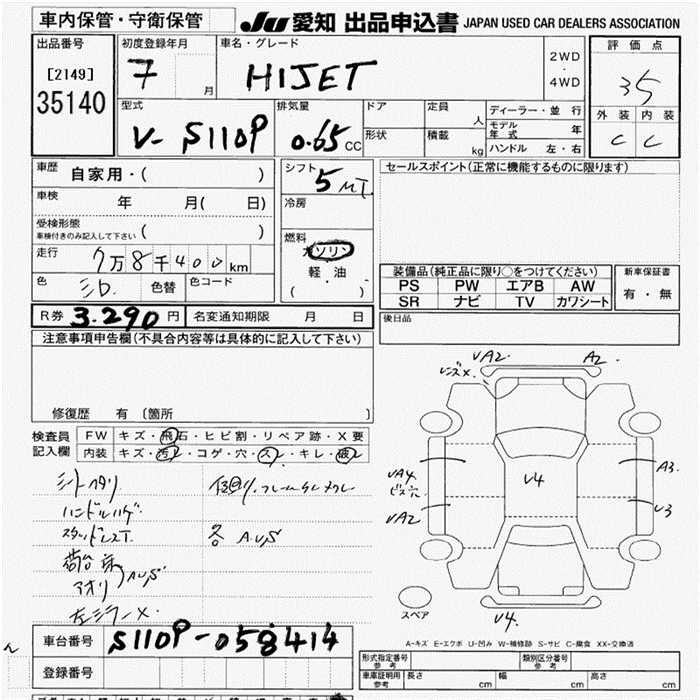 車内保管・守衛保管
JU 愛知 出品申込書 JAPAN USED CAR DEALERS ASSOCIATION
出品番号
[2149]
35140
初度登録年月
7 月
車名・グレード
HIJET
2WD
・
4WD
評価点
3.5
外装 内装
C C
型式
V- S110P
排気量
0.65 CC
ドア
形状
定員 人
積載 kg
ディーラー・並行
モデル年式 年
ハンドル 左・右
車歴
自家用・( )
車検 年 月( 日)
受検形態
車検付きのみ記入して下さい ( )
走行 7万8千400km
色 シロ 色替 色コード
シフト
5MT
冷房
燃料
ガソリン
軽油
( )
セールスポイント(正常に機能するものに限ります)
装備品(純正品に限り○をつけてください)
PS PW エアB AW
SR ナビ TV カワシート
新車保証書
有・無
R券 3.290円 名変通知期限 月 日
後日品
注意事項申告欄(不具合内容等は具体的に記入して下さい)
修復歴 有〔箇所 〕
検査員記入欄
FW キズ・飛石・ヒビ割・リペア跡・X要
内装 キズ・汚レ・コゲ・穴・スレ・キレ・破レ
シートヘタリ
ハンドルハゲ
スタッドレスT.
荷台床
アオリ
A.U,S
左ミラーX.
各 A.U,S
VA2.
レンズX.
A2.
VA4
ビス穴
VA2
V4
A3.
V3
V4.
スペア
A-キズ E-エクボ U-凹み W-補修跡 S-サビ C-腐食 XX-交換済
車台番号 S110P-058414
登録番号
形式指定番号 参考
類別区分番号 参考
車庫証明用 参考 長さ cm 幅 cm 高さ cm